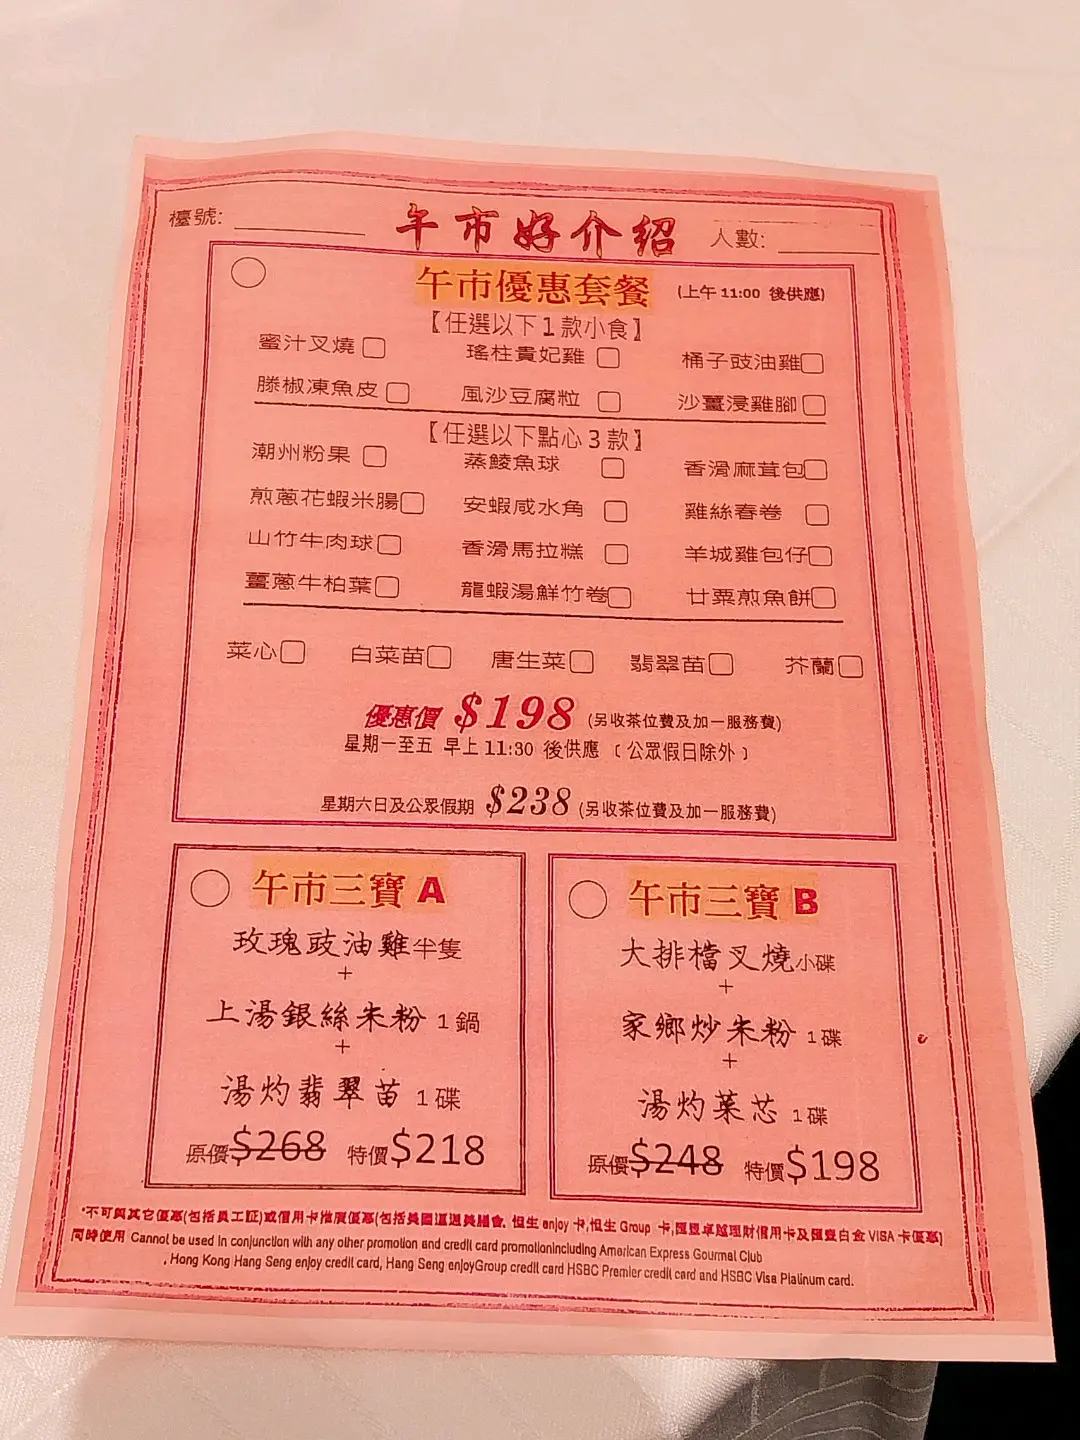 檯號:
午市好介紹
人數:
午市優惠套餐 (上午 11:00 後供應)
【任選以下 1 款小食】
蜜汁叉燒 瑤柱貴妃雞 桶子豉油雞
滕椒凍魚皮 風沙豆腐粒 沙薑浸雞腳
【任選以下點心 3 款】
潮州粉果 蒸鯪魚球 香滑麻茸包
煎蔥花蝦米腸 安蝦咸水角 雞絲春卷
山竹牛肉球 香滑馬拉糕 羊城雞包仔
薑蔥牛柏葉 龍蝦湯鮮竹卷 廿粟煎魚餅
菜心 白菜苗 唐生菜 翡翠苗 芥蘭
優惠價 $198 (另收茶位費及加一服務費)
星期一至五 早上 11:30 後供應 〔 公眾假日除外 〕
星期六日及公眾假期 $238 (另收茶位費及加一服務費)
午市三寶 A
玫瑰豉油雞半隻
+
上湯銀絲朱粉 1 鍋
+
湯灼翡翠苗 1 碟
原價$268 特價$218
午市三寶 B
大排檔叉燒小碟
+
家鄉炒朱粉 1 碟
+
湯灼菜芯 1 碟
原價$248 特價$198
*不可與其它優惠(包括員工証)或信用卡推廣優惠(包括美國運通美膳會, 恒生 enjoy 卡,恒生 Group 卡,匯豐卓越理財信用卡及匯豐白金 VISA 卡優惠)
同時使用 Cannot be used in conjunction with any other promotion and credit card promotionincluding American Express Gourmet Club
, Hong Kong Hang Seng enjoy credit card, Hang Seng enjoyGroup credit card HSBC Premier credit card and HSBC Visa Platinum card.